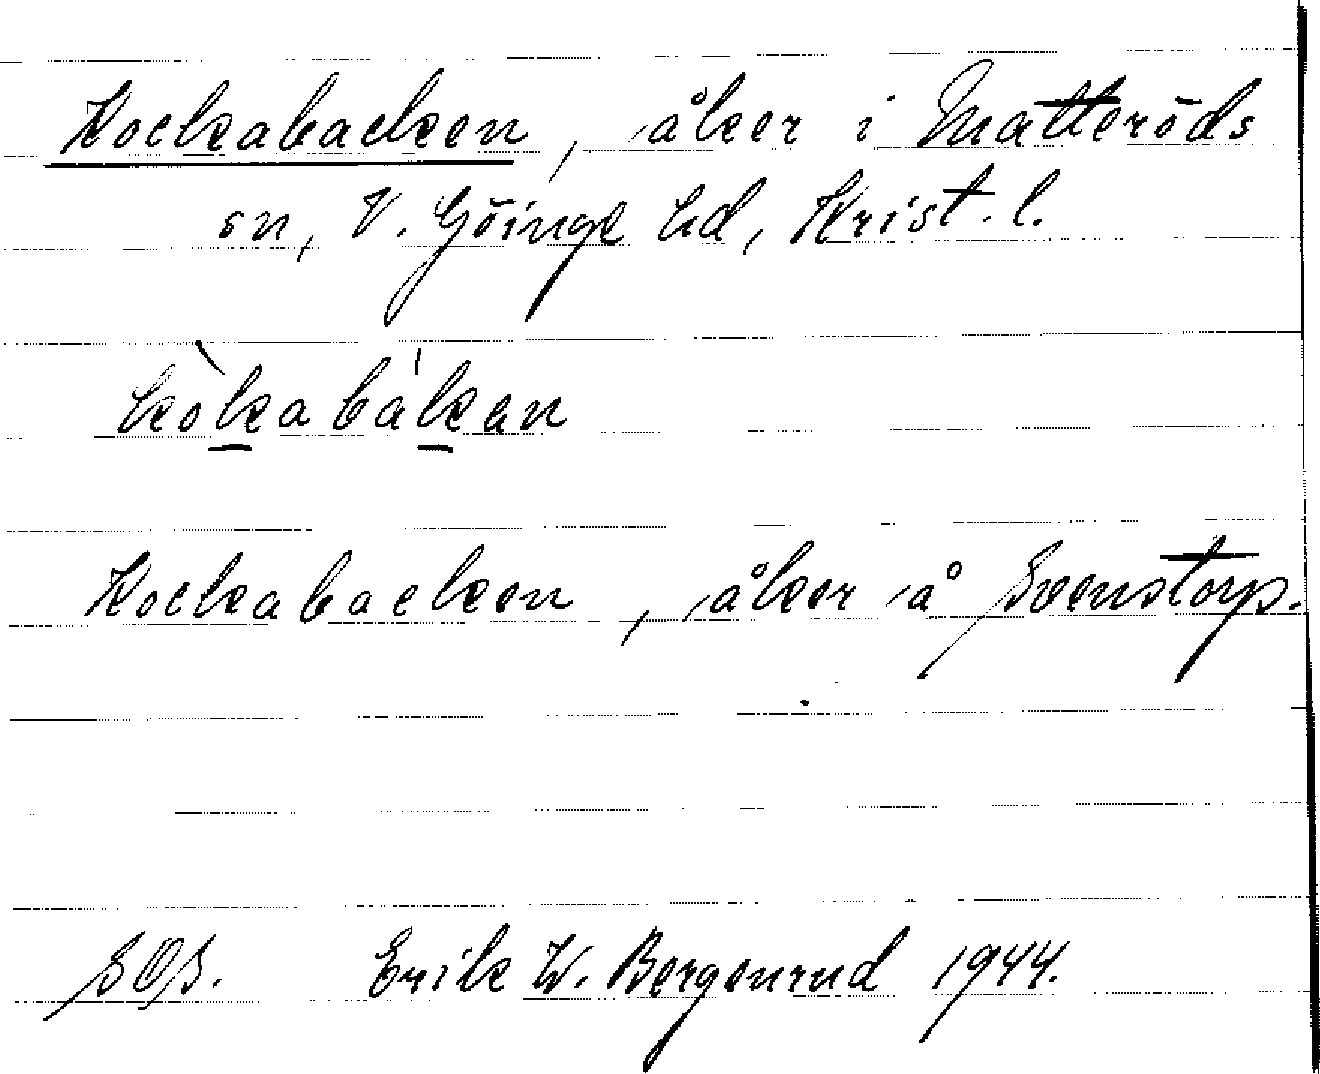 Kockabacken, åker i Matteröds
sn, V. Göinge hd, Krist. l.
kòkabákan
Kockabacken, åker å Svenstorp.
SOS. Erik W. Bergenrud 1944.